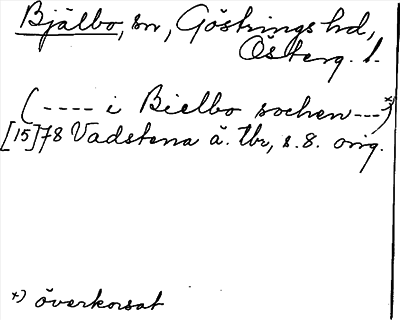 Bjälbo, sn, Göstrings hd,
Österg. l.
(---- i Bielbo sochen ---)*)
[15]78 Vadstena ä. tbr, s. 8. orig.
*) överkorsat